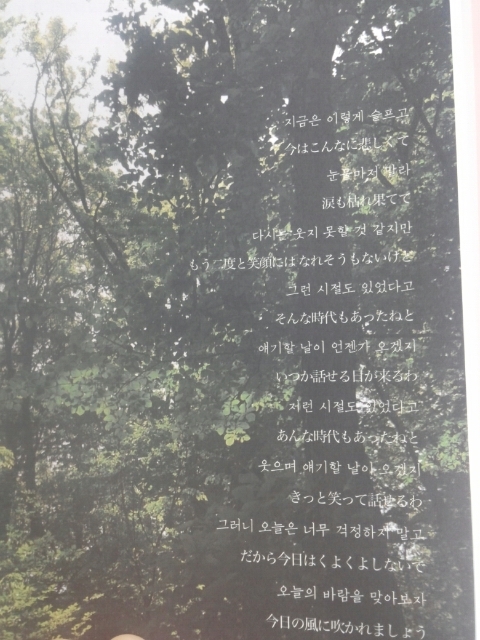 지금은 이렇게 슬프고
今はこんなに悲しくて
눈물마저 말라
涙も枯れ果てて
다시는 웃지 못할 것 같지만
もう二度と笑顔にはなれそうもないけど
그런 시절도 있었다고
そんな時代もあったねと
얘기할 날이 언젠가 오겠지
いつか話せる日が来るわ
저런 시절도 있었다고
あんな時代もあったねと
웃으며 얘기할 날이 오겠지
きっと笑って話せるわ
그러니 오늘은 너무 걱정하지 말고
だから今日はくよくよしないで
오늘의 바람을 맞아보자
今日の風に吹かれましょう